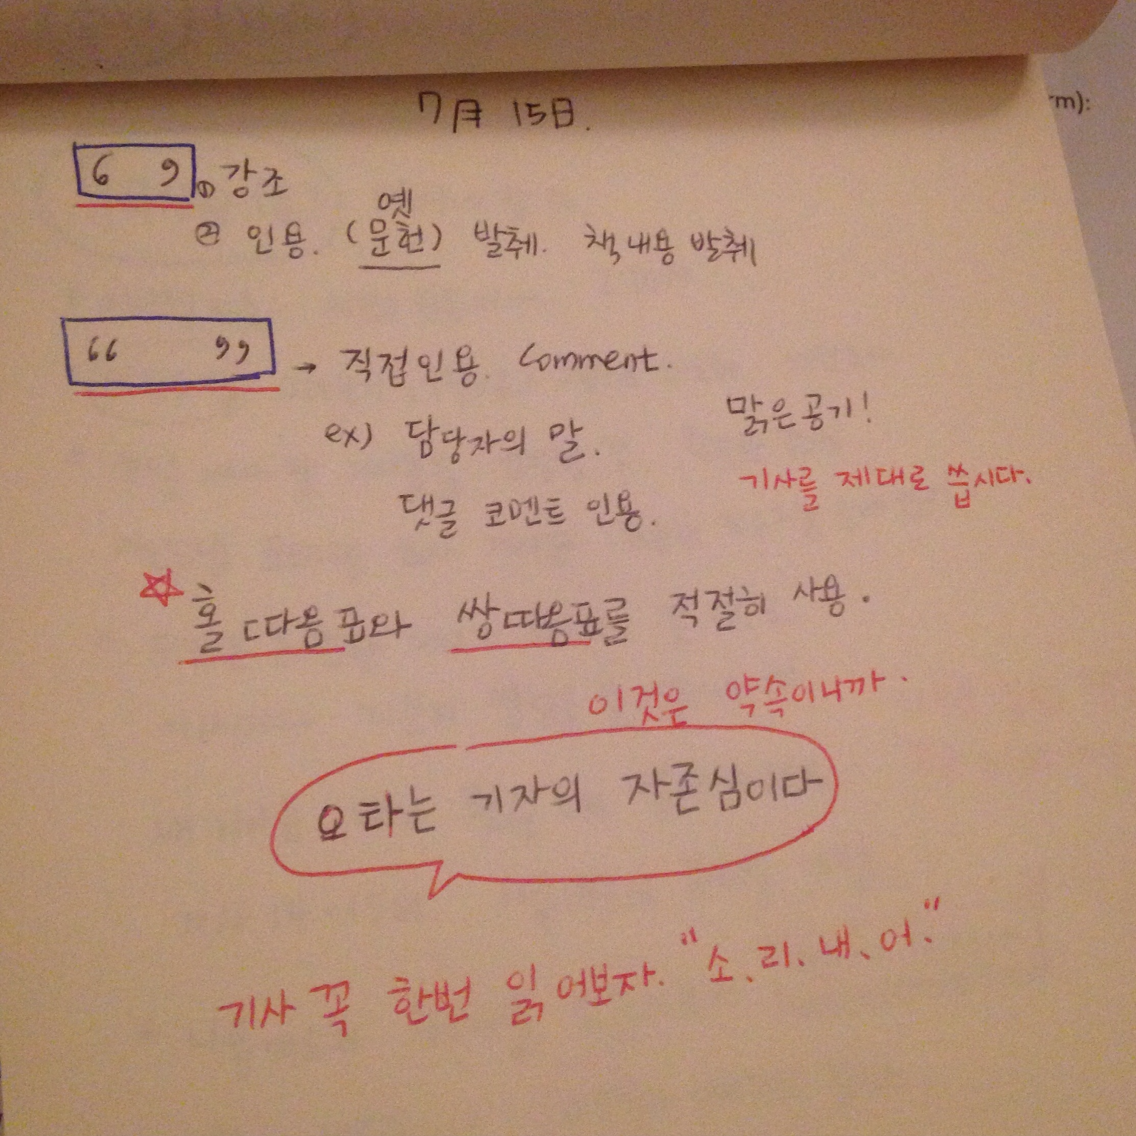 rm):
7月 15日.
‘ ’ ① 강조
옛
② 인용. (문헌) 발췌. 책내용 발췌
“ ” → 직접인용. Comment.
ex) 담당자의 말.
맑은공기!
댓글 코멘트 인용.
기사를 제대로 씁시다.
☆ 홑따옴표와 쌍따옴표를 적절히 사용.
이것은 약속이니까.
오타는 기자의 자존심이다
기사 꼭 한번 읽어보자. "소.리.내.어."